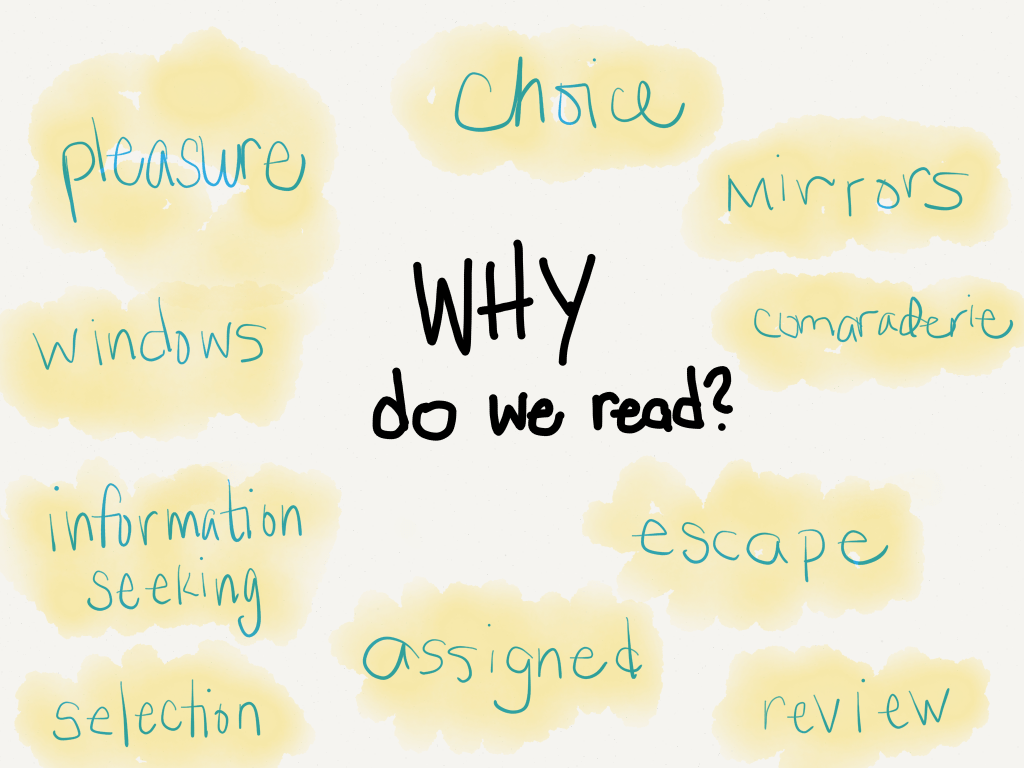 choice
pleasure
mirrors
WHY
do we read?
windows
comaraderie
information
seeking
escape
assigned
selection
review